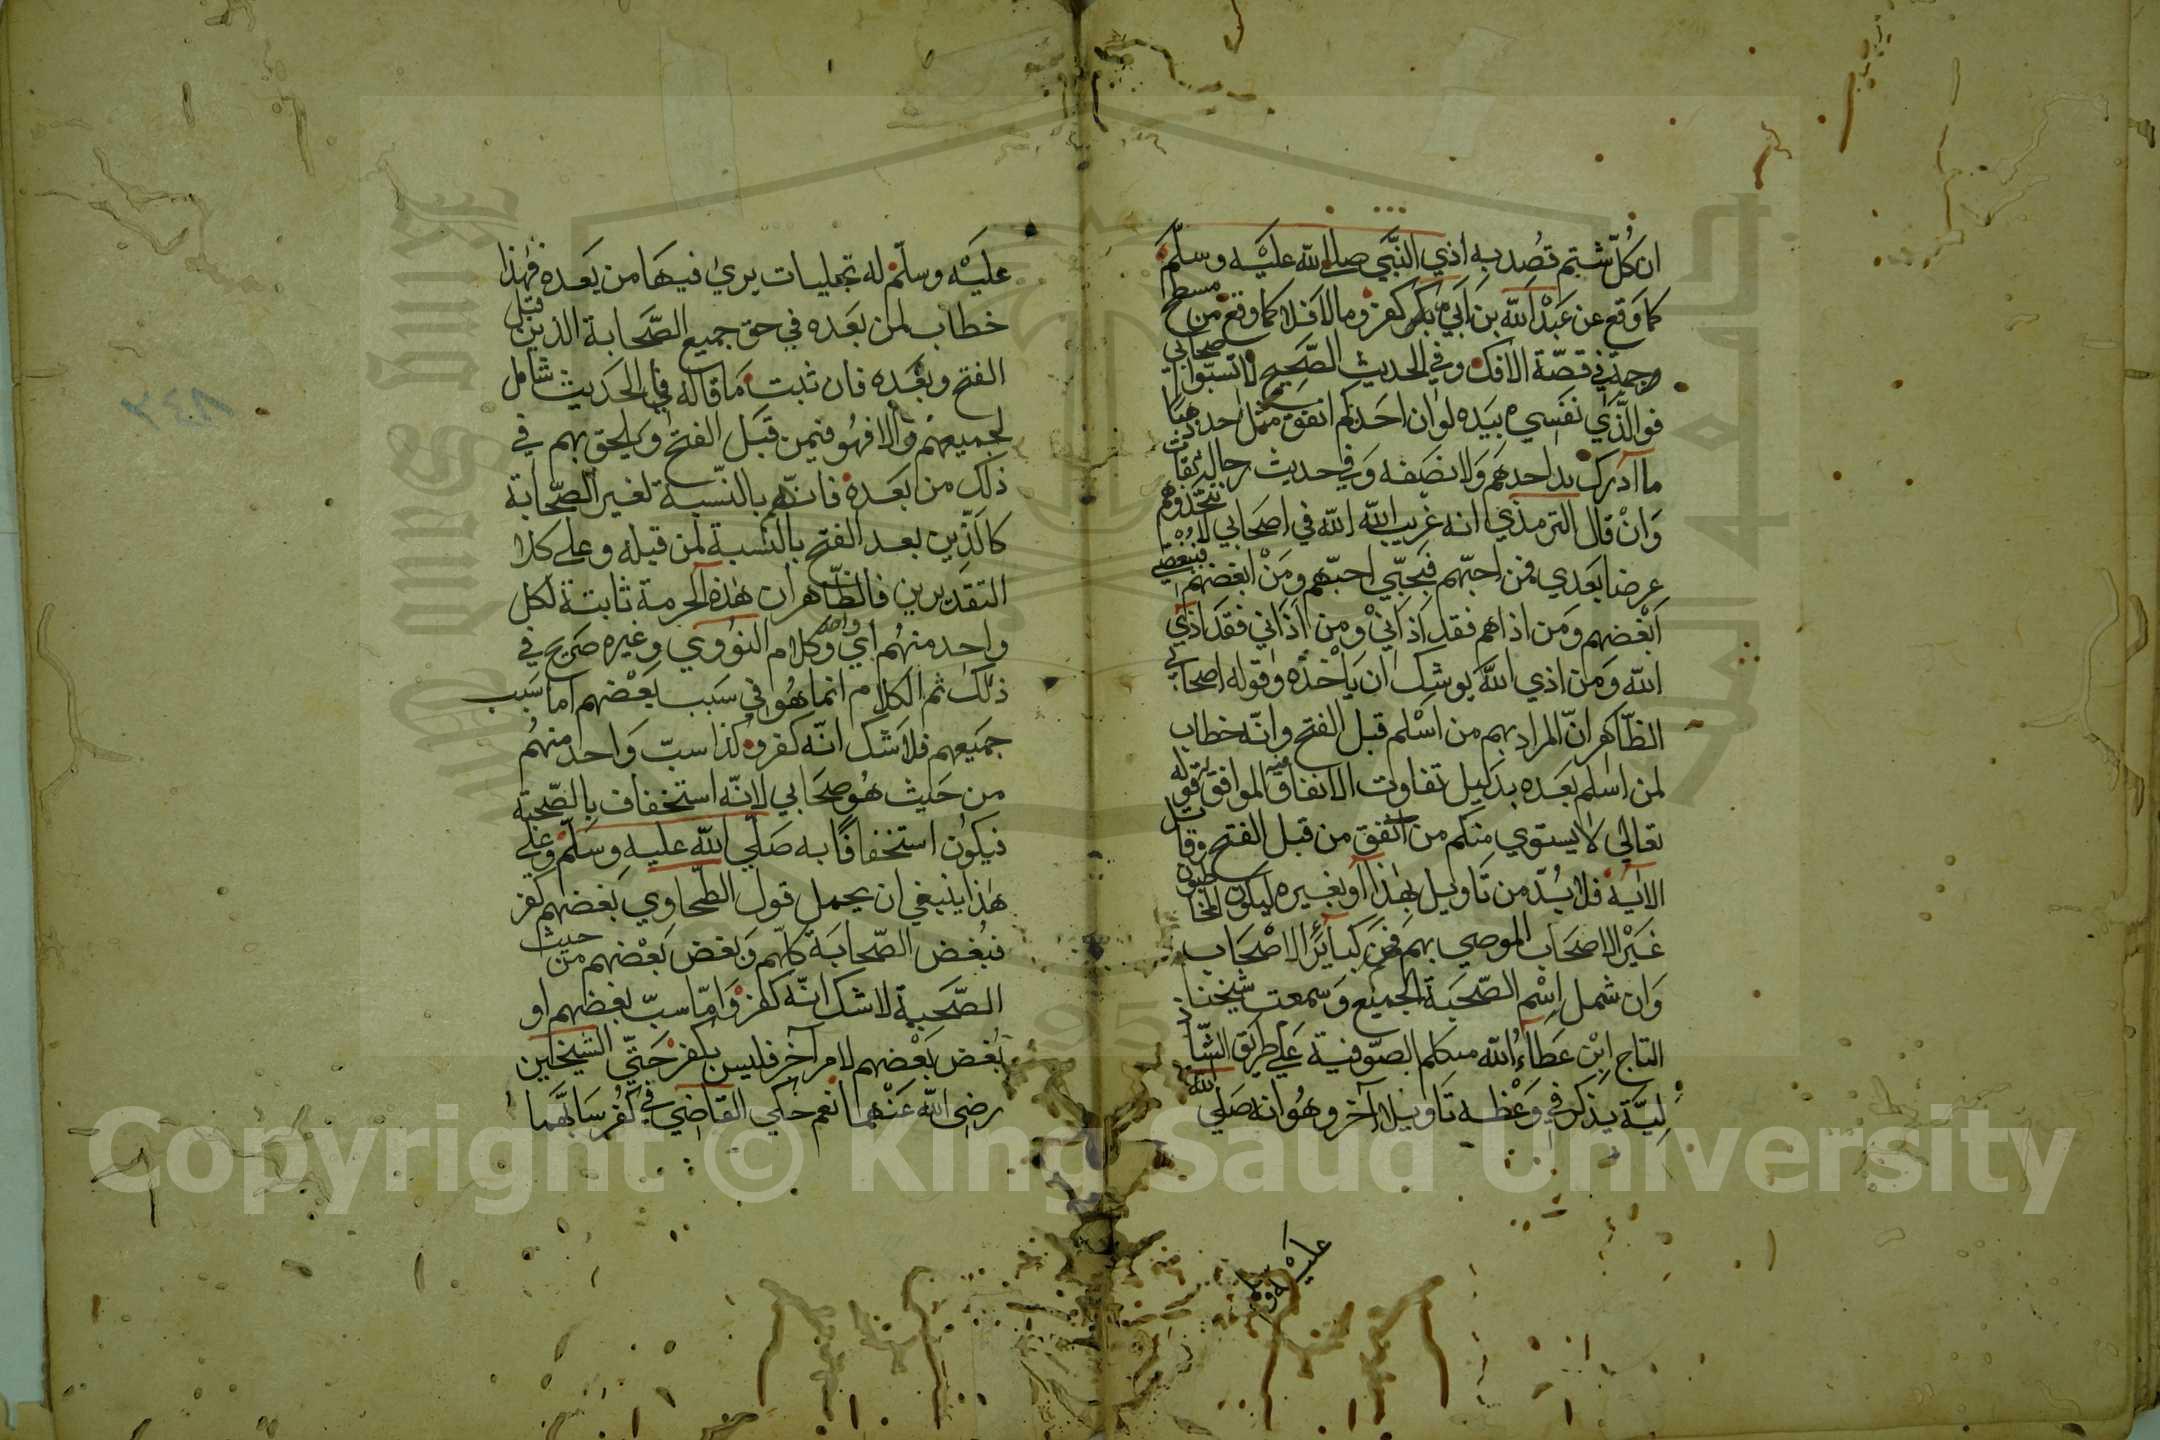 ان كل شتم قصد به اذي النبي صلى الله عليه وسلم
كما وقع عن عبد الله بن ابي بكر كفر وما لا فلا كما وقع من مسطح
وحمنة في قصة الافك وفي الحديث الصحيح لا تسبوا اصحابي
فو الذي نفسي بيده لو ان احدكم انفق مثل احد ذهبا
ما ادرك مد احدهم ولا نصفه وفي حديث رجاله ثقات
وان قال الترمذي انه غريب الله الله في اصحابي لا تتخذوهم
عرضا بعدي فمن احبهم فبحبي احبهم ومن ابغضهم فببغضي
ابغضهم ومن اذاهم فقد اذاني ومن اذاني فقد اذي
الله ومن اذي الله يوشك ان ياخذه وقوله اصحابي
الظاهر ان المراد بهم من اسلم قبل الفتح وانه خطاب
لمن اسلم بعده بدليل تفاوت الانفاق فيه الموافق له قوله
تعالي لا يستوي منكم من انفق من قبل الفتح وقاتل
الاية فلا بد من تاويل بهذا او بغيره ليكون المخاطبون
غير الاصحاب الموصي بهم فهم كباير الاصحاب
وان شمل اسم الصحبة الجميع وسمعت شيخنا
التاج ابن عطاء الله متكلم الصوفية على طريق الشاذ
لية يذكر في وعظه تاويلا آخر وهو انه صلى الله
عليه وسلم
عليه وسلم له تجليات يرى فيها من بعده فهذا
خطاب لمن بعده في حق جميع الصحابة الذين قبل
الفتح وبعده فان ثبت ما قاله في الحديث شامل
لجميعهم والا فهو فيمن قبل الفتح ويلحق بهم في
ذلك من بعده فانهم بالنسبة لغير الصحابة
كالذين بعد الفتح بالنسبة لمن قبله وعلى كلا
التقديرين فالظاهر ان هذه الحرمة ثابتة لكل
واحد منهم اي واحد وكلام النووي وغيره صريح في
ذلك ثم الكلام انما هو في سبب بعضهم اما سبب
جميعهم فلا شك انه كفر وكذا سب واحد منهم
من حيث هو صحابي لانه استخفاف بالصحبة
فيكون استخفافا به صلى الله عليه وسلم وعلى
هذا ينبغي ان يحمل قول الطحاوي بغضهم كفر
فبغض الصحابة كلهم وبغض بعضهم من حيث
الصحبة لا شك انه كفر واما سب بعضهم او
بغض بعضهم لامر آخر فليس بكفر حتى الشيخين
رضي الله عنهما نعم حكي القاضي في كفر سابهما
Copyright © King Saud University
1957